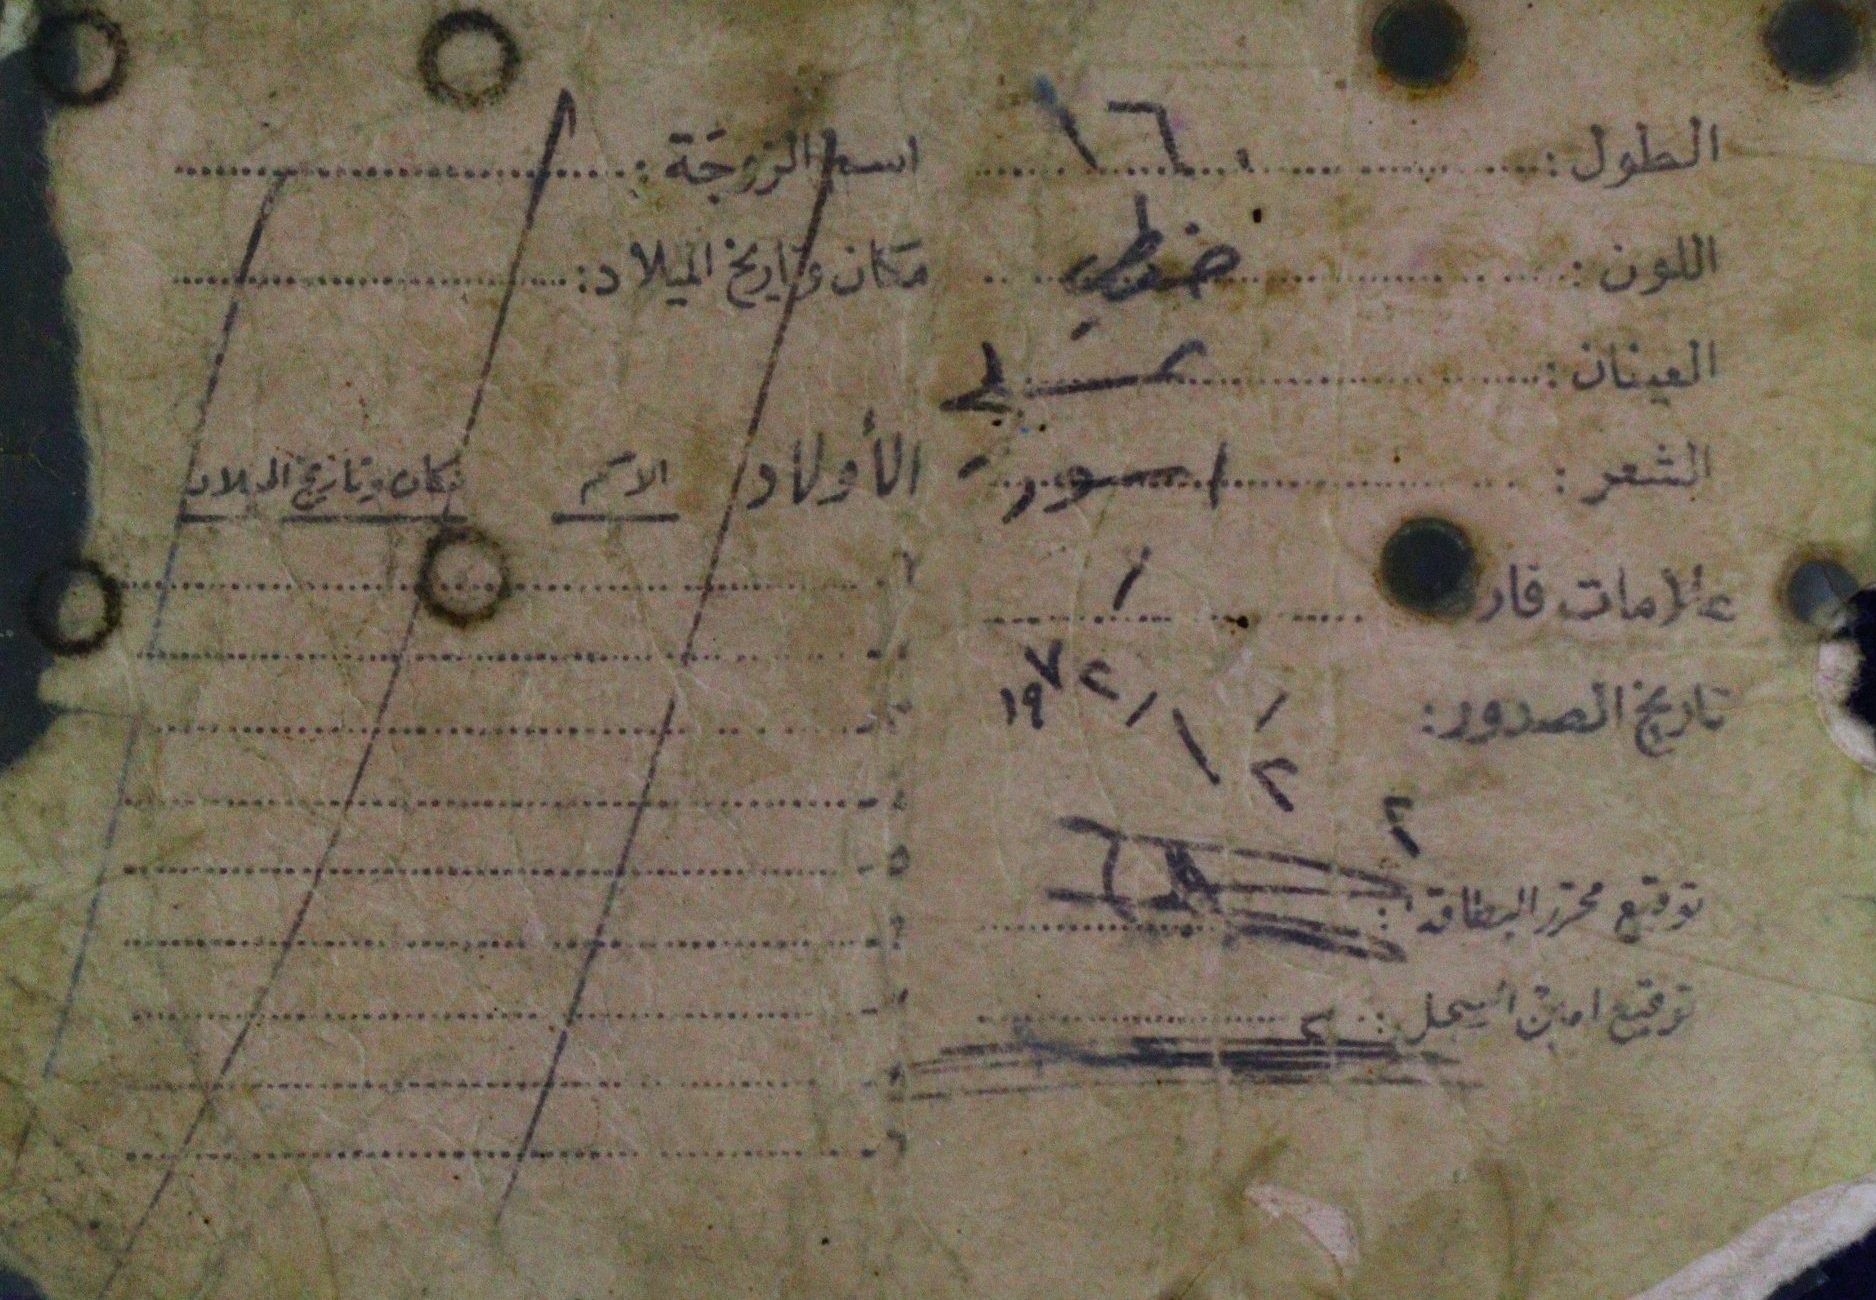 الطول: ١٦٠
اللون: حنطي
العينان: عسلي
الشعر: اسود
علامات فار
تاريخ الصدور: ٢ / ١ / ١٩٧٢
توقيع محرر البطاقة:
توقيع امين السجل:
اسم الزوجة:
مكان وتاريخ الميلاد:
الأولاد الاسم مكان وتاريخ الميلاد
١-
٢-
٣-
٤-
٥-
٦-
٧-
٨-
٩-